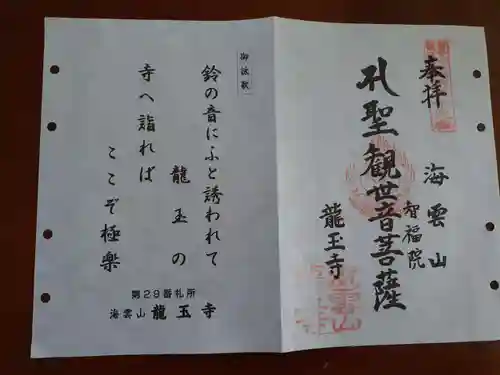 奉拝
海雲山
智福院
孔聖観世音菩薩
龍玉寺
御詠歌
鈴の音にふと誘われて
龍玉の
寺へ詣れば
ここぞ極楽
第29番札所
海雲山 龍玉寺